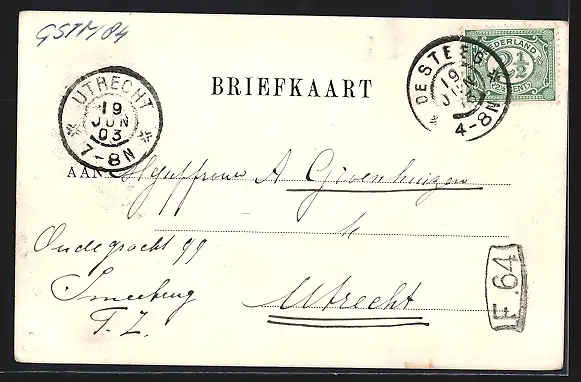 GSTM84
NEDERLAND
2½
CENT
DE STEEG
19
JUN
4-8N
UTRECHT
19
JUN
03
7-8N
BRIEFKAART
AAN Mejuffrouw A Groenhuizen
te
Oudegracht 99
Utrecht
T. Z.
E 64